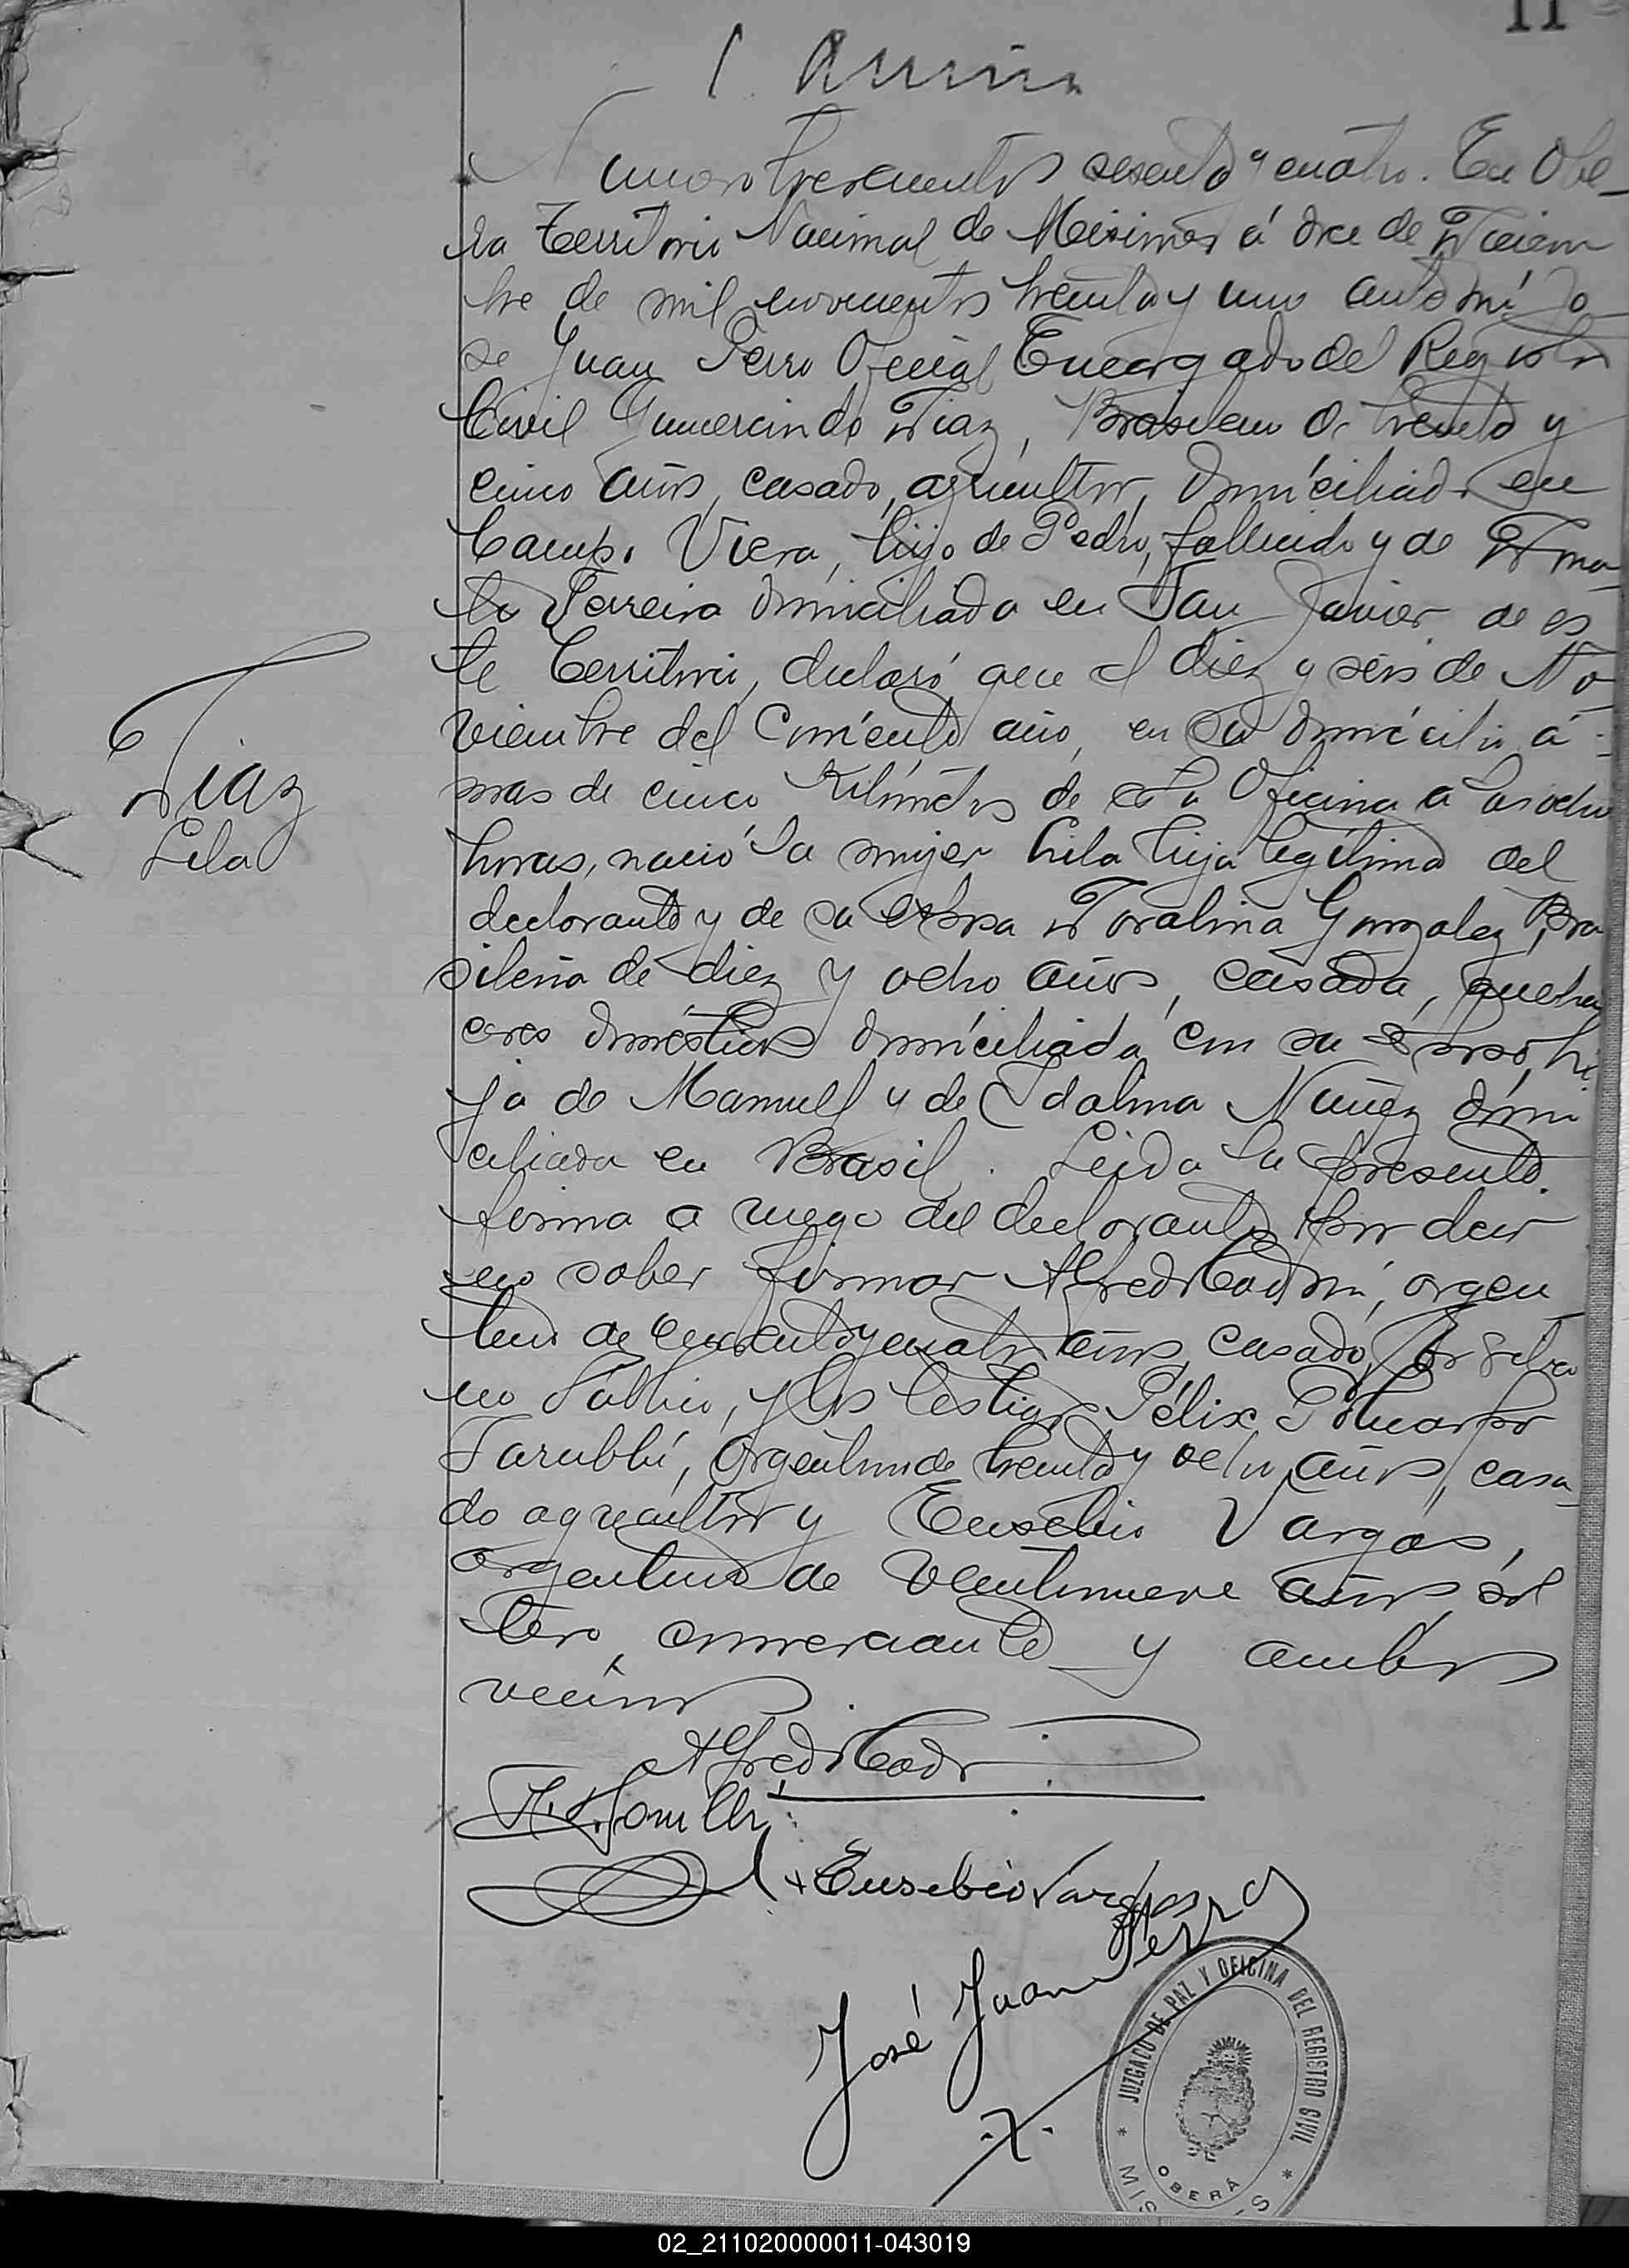 11
C. Ameri
Numero trescientos sesenta y cuatro. En Obe-
ra Territorio Nacional de Misiones á doce de Diciem
bre de mil novecientos treinta y uno ante mí Jo-
se Juan Perro Oficial Encargado del Registro
Civil Gumercindo Diaz, Brasilero de treinta y
cinco años, casado, agricultor, domiciliado en
Campo Viera, hijo de Pedro, fallecido y de Dona-
ta Ferreira domiciliada en San Javier de es
te Territorio, declaró que el diez y seis de No
viembre del corriente año, en su domicilio á
mas de cinco Kilómetros de esta Oficina a las ocho
horas, nació la mujer Lila hija legítima del
declarante y de su esposa Doralina Gonzalez, Bra
sileña de diez y ocho años, casada, queha
ceres domésticos domiciliada con su esposo, hi-
ja de Manuel y de Idalina Nuñez domi
ciliada en Brasil. Leida la presente.
firma a ruego del declarante por decir
no saber firmar Alfredo Codoni, argen
tino de cuarenta y cuatro años, casado, Escriba
no Público, y los testigos Félix Policarpo
argentino de treinta y ocho años, casa-
do agricultor y Eusebio Vargas,
argentino de veintinueve años sol
tero, comerciante y ambos
vecinos
Diaz
Lila
Eusebio Vargas
José Juan Perro
JUZGADO DE PAZ Y OFICINA DEL REGISTRO CIVIL
OBERÁ
02_211020000011-043019